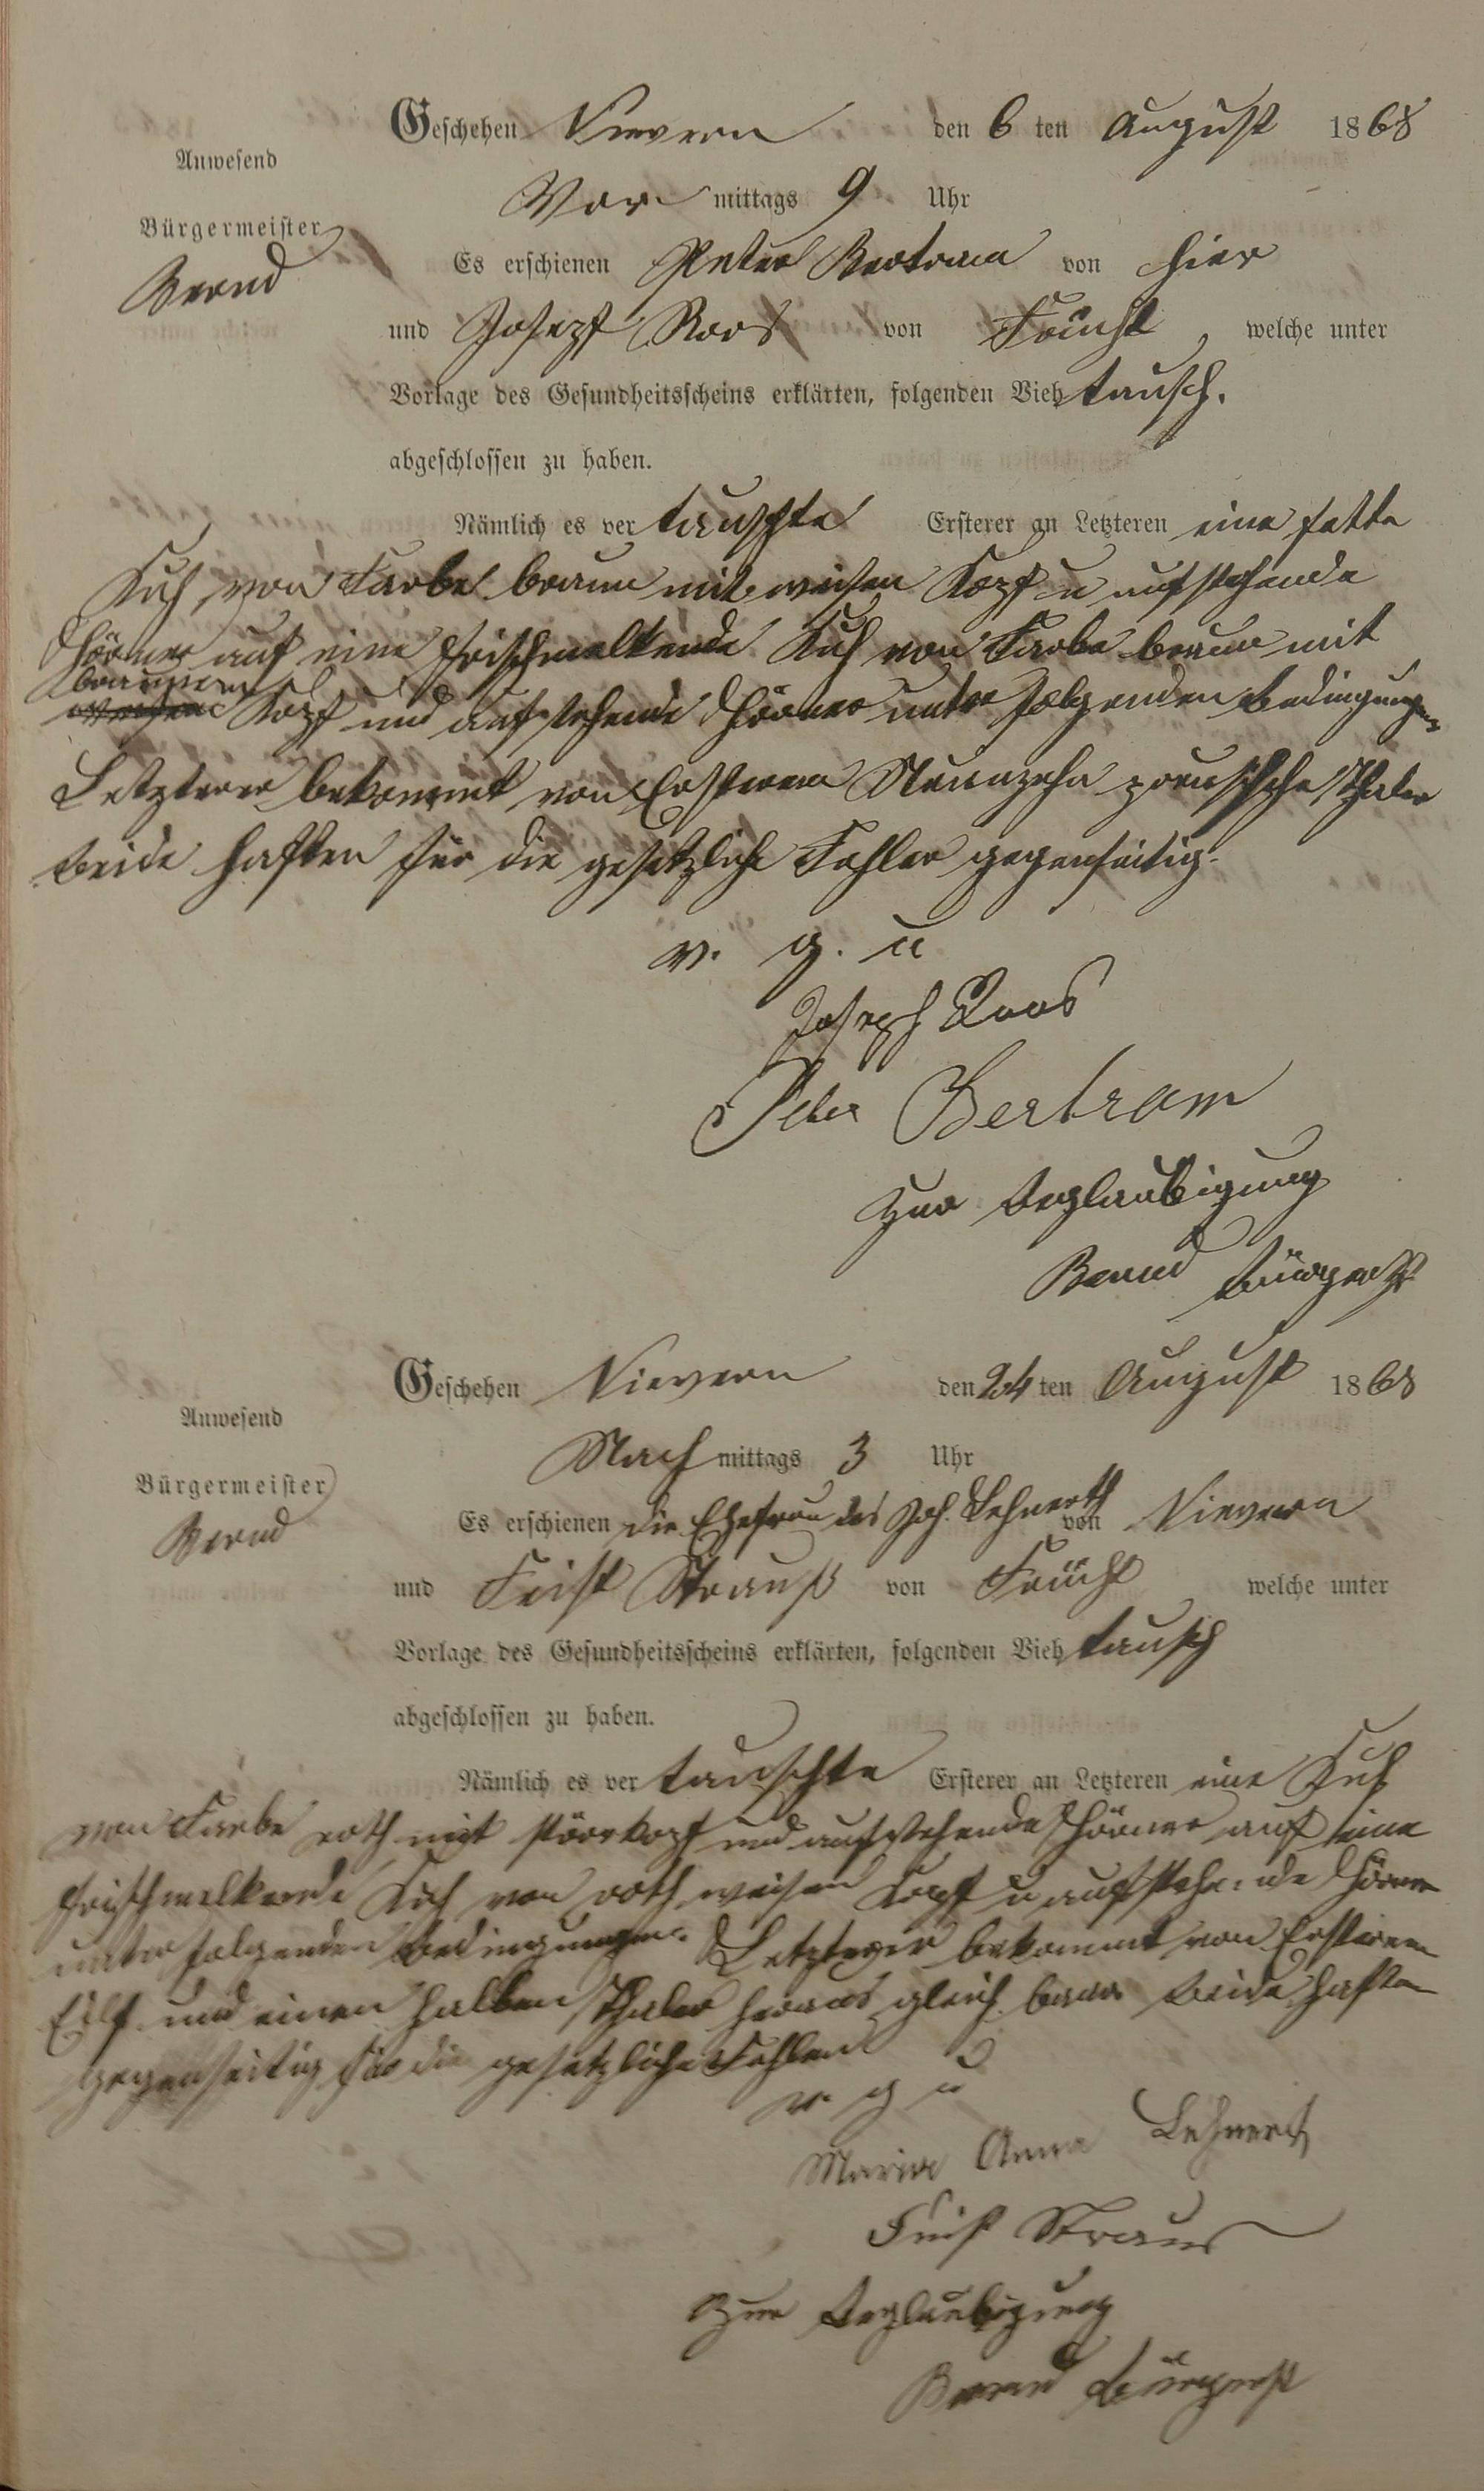 Geschehen Nievern den 6 ten August 1868
Anwesend
Vor mittags 9 Uhr
Bürgermeister
Bernd
Es erschienen Peter Bertram von hier
und Joseph Roos von Frücht, welche unter
Vorlage des Gesundheitsscheins erklärten, folgenden Vieh tausch.
abgeschlossen zu haben.
Nämlich es ver tauschte Ersterer an Letzteren eine fette
Kuh von Farbe braun mit weisen Kopf u aufstehende
Hörner auf eine frischmelkende Kuh von Farbe braun mit
braunem
Kopf und aufstehende Hörner unter folgenden Bedingungen
Letzterer bekommt von Ersteren Neunzehn preusische Thaler
beide haften für die gesetzliche Fehler gegenseitig.
v. g. u
Joseph Roos
Peter Bertram
Zur Beglaubigung
Bernd Bürgerst
Geschehen Nievern den 24 ten August 1868
Anwesend
Nach mittags 3 Uhr
Bürgermeister
Bernd
Es erschienen die Ehefrau des Joh. Lehnerth von Nievern
und Feist Strauß von Frücht welche unter
Vorlage des Gesundheitsscheins erklärten, folgenden Vieh tausch
abgeschlossen zu haben.
Nämlich es ver tauschte Ersterer an Letzteren eine Kuh
von Farbe roth mit und aufstehende Hörner auf eine
frischmelkende Kuh von roth weisen Kopf u aufstehende Hörner
unter folgenden Bedingungen. Letzterer bekommt von Ersteren
Eilf und einen halben Thaler heraus gleich baar beide haften
gegenseitig für die gesetzliche Fehler
v g u
Maria Anna Lehnert
Feist Straus
Zur Beglaubigung
Bernd Bürgerst